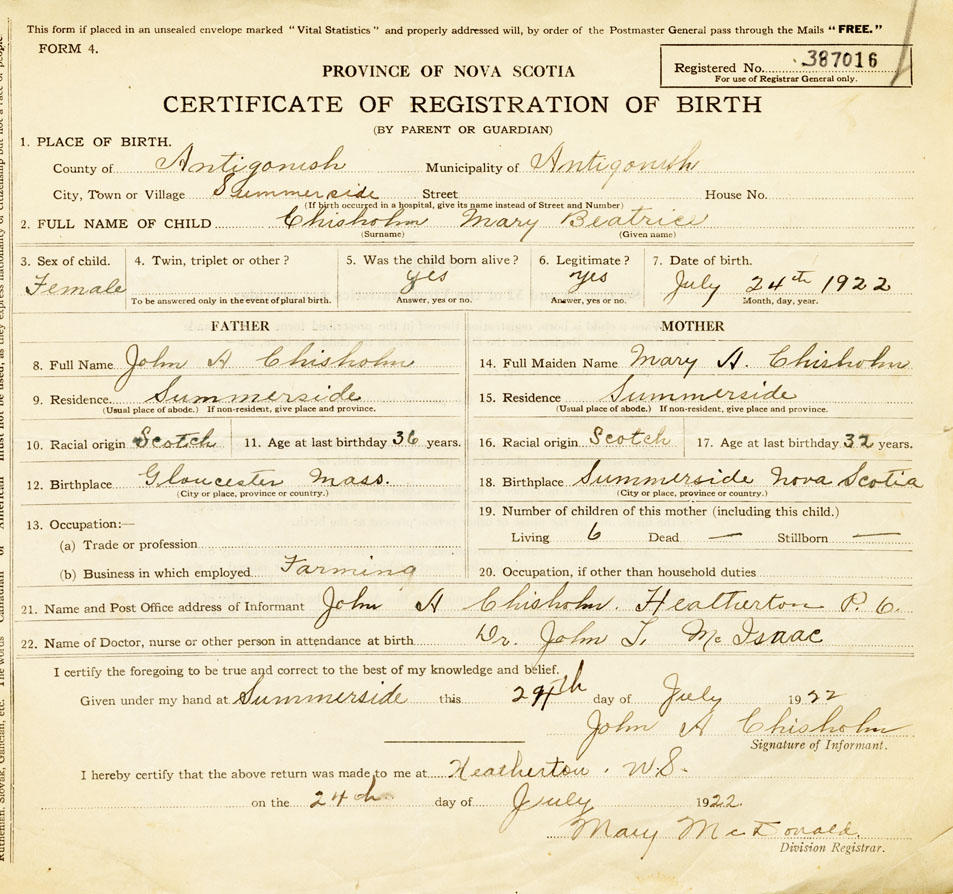 This form if placed in an unsealed envelope marked "Vital Statistics" and properly addressed will, by order of the Postmaster General pass through the Mails "FREE."
FORM 4.
Registered No. 387016
For use of Registrar General only.
PROVINCE OF NOVA SCOTIA
CERTIFICATE OF REGISTRATION OF BIRTH
(BY PARENT OR GUARDIAN)
1. PLACE OF BIRTH.
County of Antigonish Municipality of Antigonish
City, Town or Village Summerside Street House No.
(If birth occurred in a hospital, give its name instead of Street and Number)
2. FULL NAME OF CHILD Chisholm Mary Beatrice
(Surname) (Given name)
3. Sex of child. 4. Twin, triplet or other? 5. Was the child born alive? 6. Legitimate? 7. Date of birth.
Female yes yes July 24th 1922
To be answered only in the event of plural birth. Answer, yes or no. Answer, yes or no. Month, day, year.
FATHER MOTHER
8. Full Name John A Chisholm 14. Full Maiden Name Mary A. Chisholm
9. Residence Summerside 15. Residence Summerside
(Usual place of abode.) If non-resident, give place and province. (Usual place of abode.) If non-resident, give place and province.
10. Racial origin Scotch 11. Age at last birthday 36 years. 16. Racial origin Scotch 17. Age at last birthday 32 years.
12. Birthplace Gloucester Mass. 18. Birthplace Summerside Nova Scotia
(City or place, province or country.) (City or place, province or country.)
13. Occupation:— 19. Number of children of this mother (including this child.)
(a) Trade or profession Living 6 Dead — Stillborn —
(b) Business in which employed Farming 20. Occupation, if other than household duties
21. Name and Post Office address of Informant John A Chisholm. Heatherton P.O.
22. Name of Doctor, nurse or other person in attendance at birth Dr. John L. McIsaac
I certify the foregoing to be true and correct to the best of my knowledge and belief.
Given under my hand at Summerside this 24th day of July 1922
John A Chisholm
Signature of Informant.
I hereby certify that the above return was made to me at Heatherton. N.S.
on the 24th day of July 1922.
Mary McDonald.
Division Registrar.